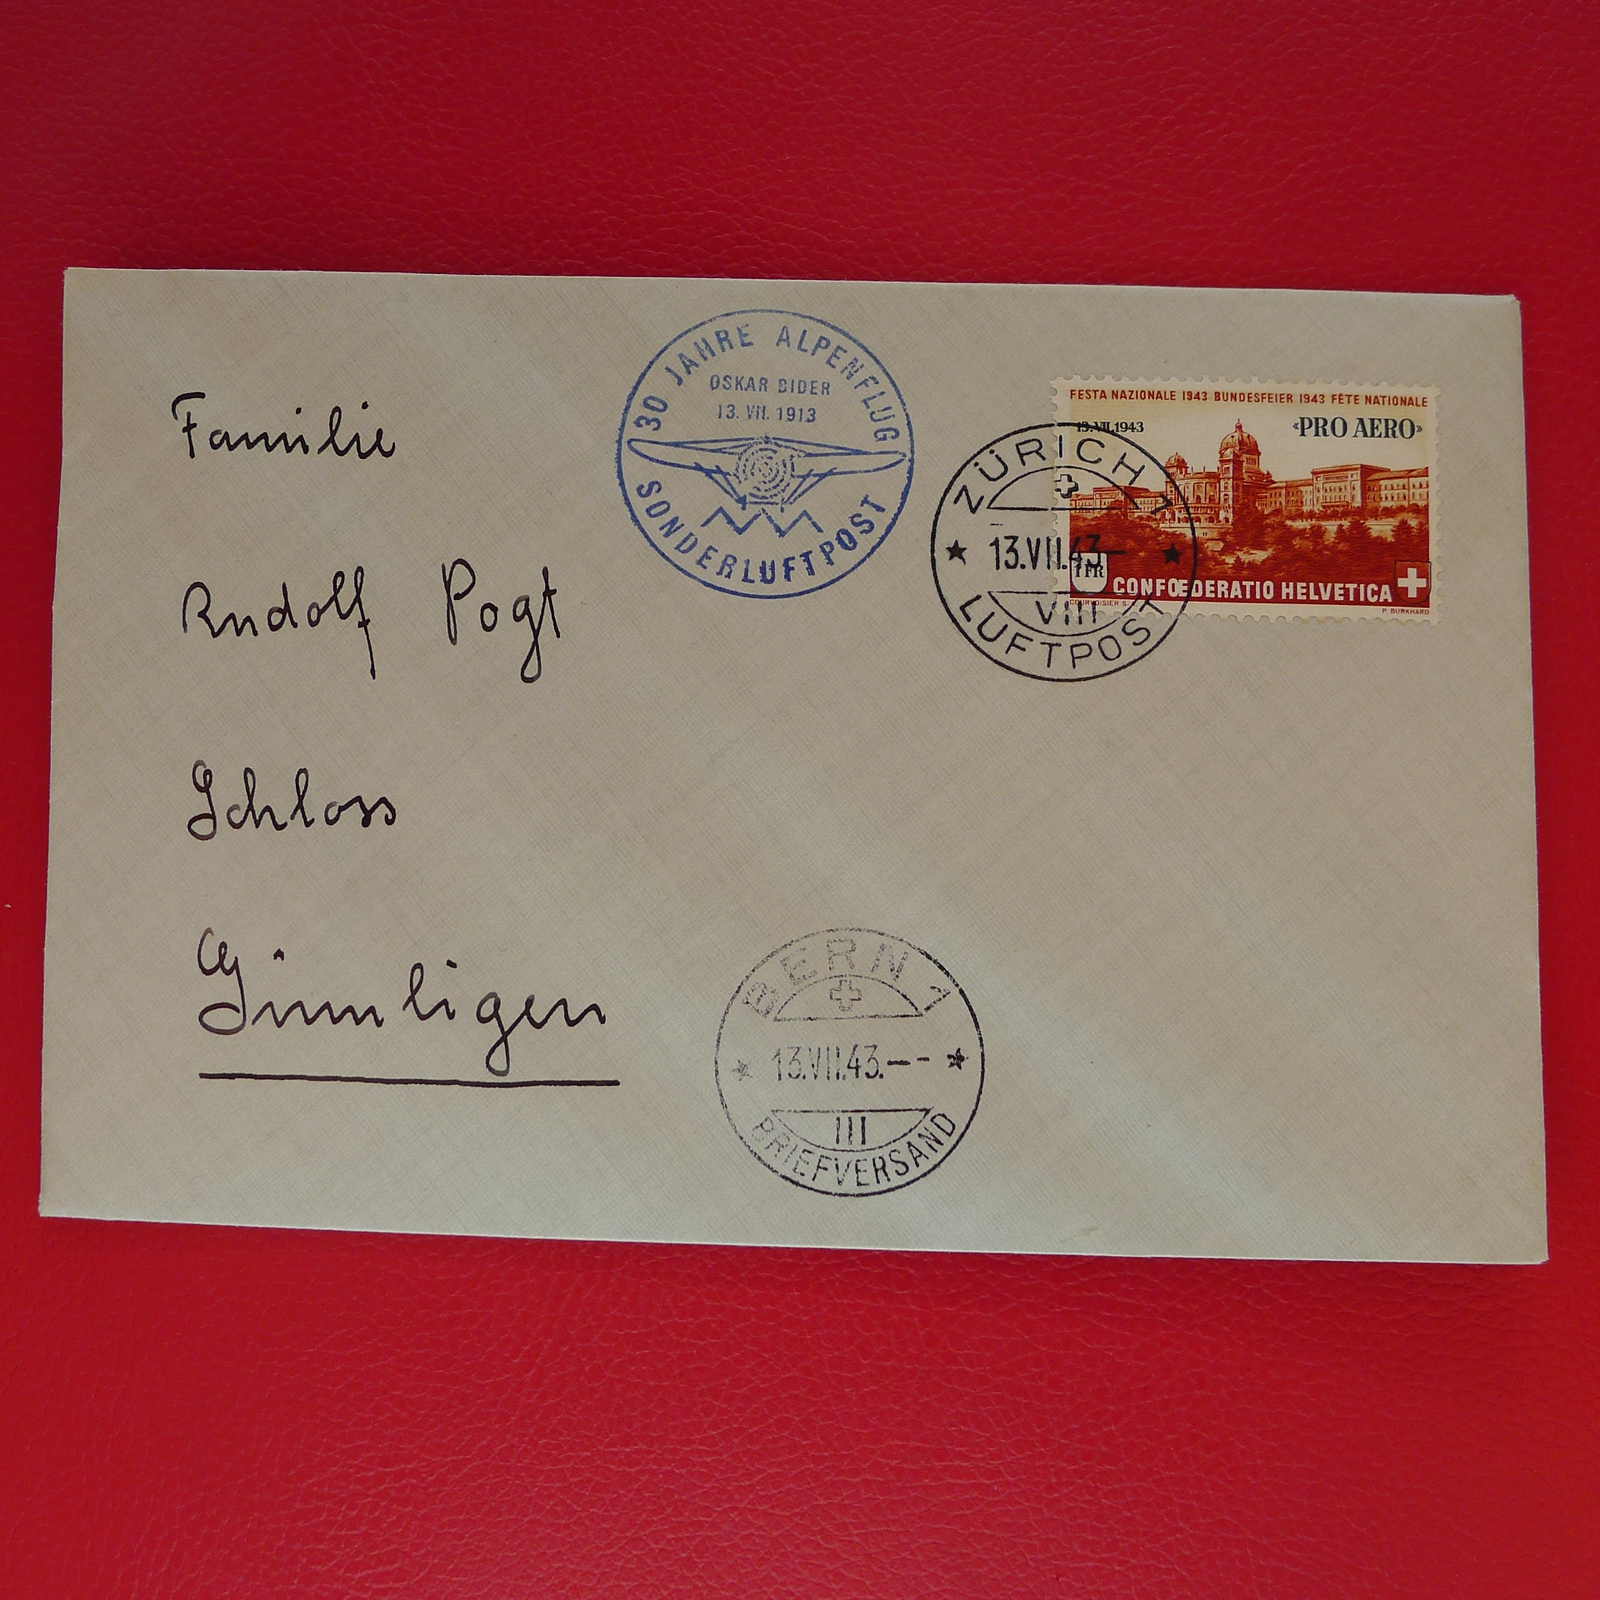 Familie
Rudolf Pogt
Schloss
Gümligen
30 JAHRE ALPENFLUG
OSKAR BIDER
13. VII. 1913
SONDERLUFTPOST
FESTA NAZIONALE 1943 BUNDESFEIER 1943 FÊTE NATIONALE
13.VII.1943
«PRO AERO»
1 FR
CONFŒDERATIO HELVETICA
COURVOISIER S.
P. BURKHARD
ZÜRICH 1
13.VII.43-
VIII
LUFTPOST
BERN 1
13.VII.43.--
III
BRIEFVERSAND